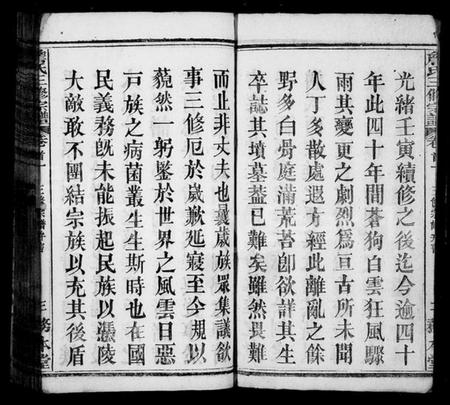 光緒壬寅續修之後迄今逾四十
年此四十年間蒼狗白雲狂風驟
雨其變更之劇烈爲亘古所未聞
人丁多散處遐方經此離亂之餘
野多白骨庭滿荒苔卽欲詳其生
卒誌其墳墓蓋已難矣雖然畏難
而止非丈夫也曩歲族眾集議欲
事三修厄於歲歉延寢至今覌以
藐然一躬鑒於世界之風雲日惡
戶族之病菌叢生生斯時也在國
民義務旣未能振起民族以懲陵
大敵敢不團結宗族以充其後盾
詹氏三修宗譜
卷首
務本堂